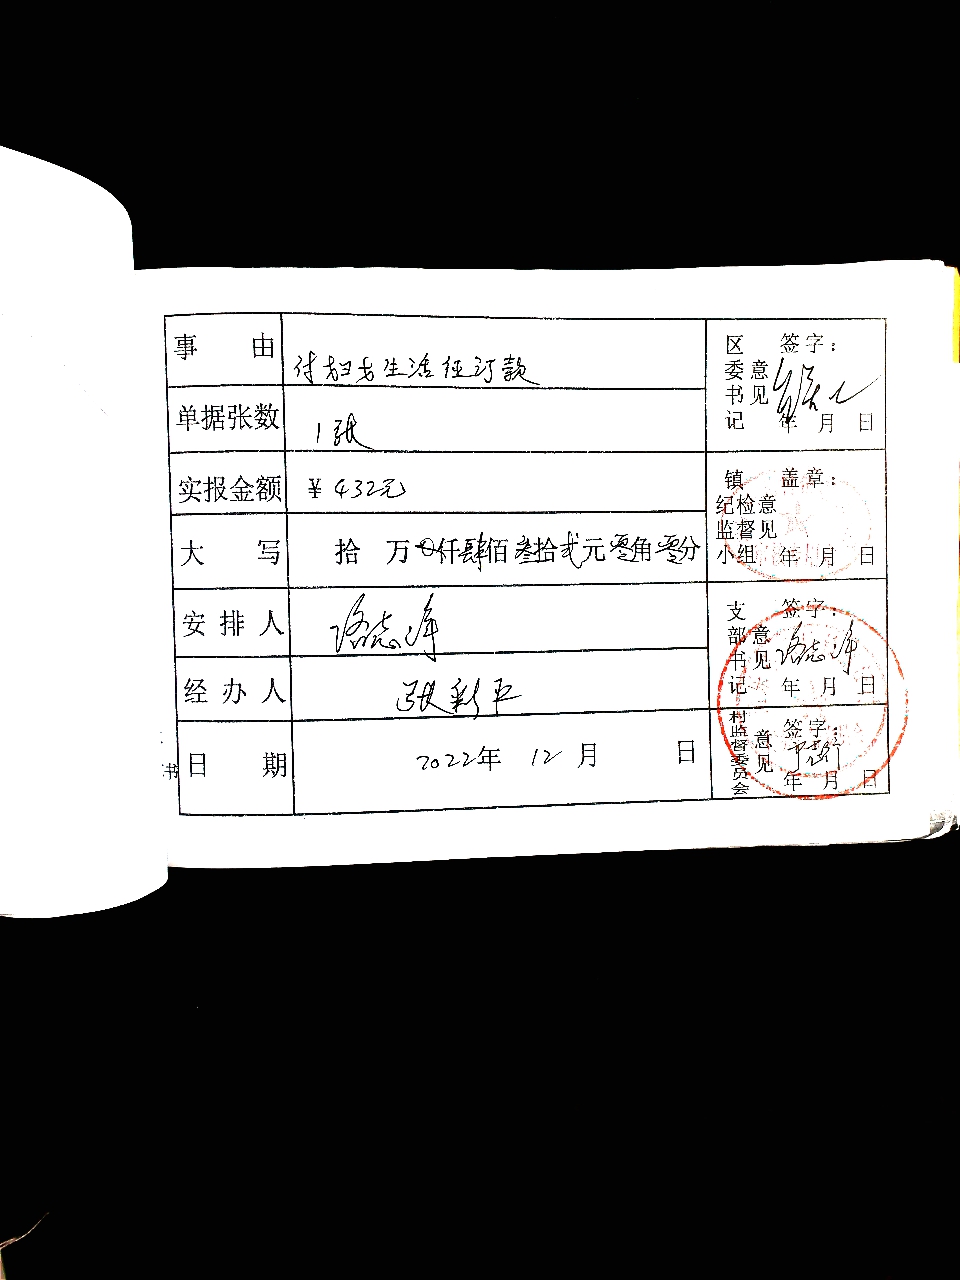 事 由 付妇女生活征订款
单据张数 1张
实报金额 ￥432元
大 写 拾 万 仟肆佰叁拾贰元零角零分
安排人
经办人 张彩平
日 期 2022年 12月 日
区委书记意见 签字:
年 月 日
镇纪检监督小组意见 盖章:
年 月 日
支部书记意见 签字:
年 月 日
村监督委员会意见 签字:
年 月 日
书